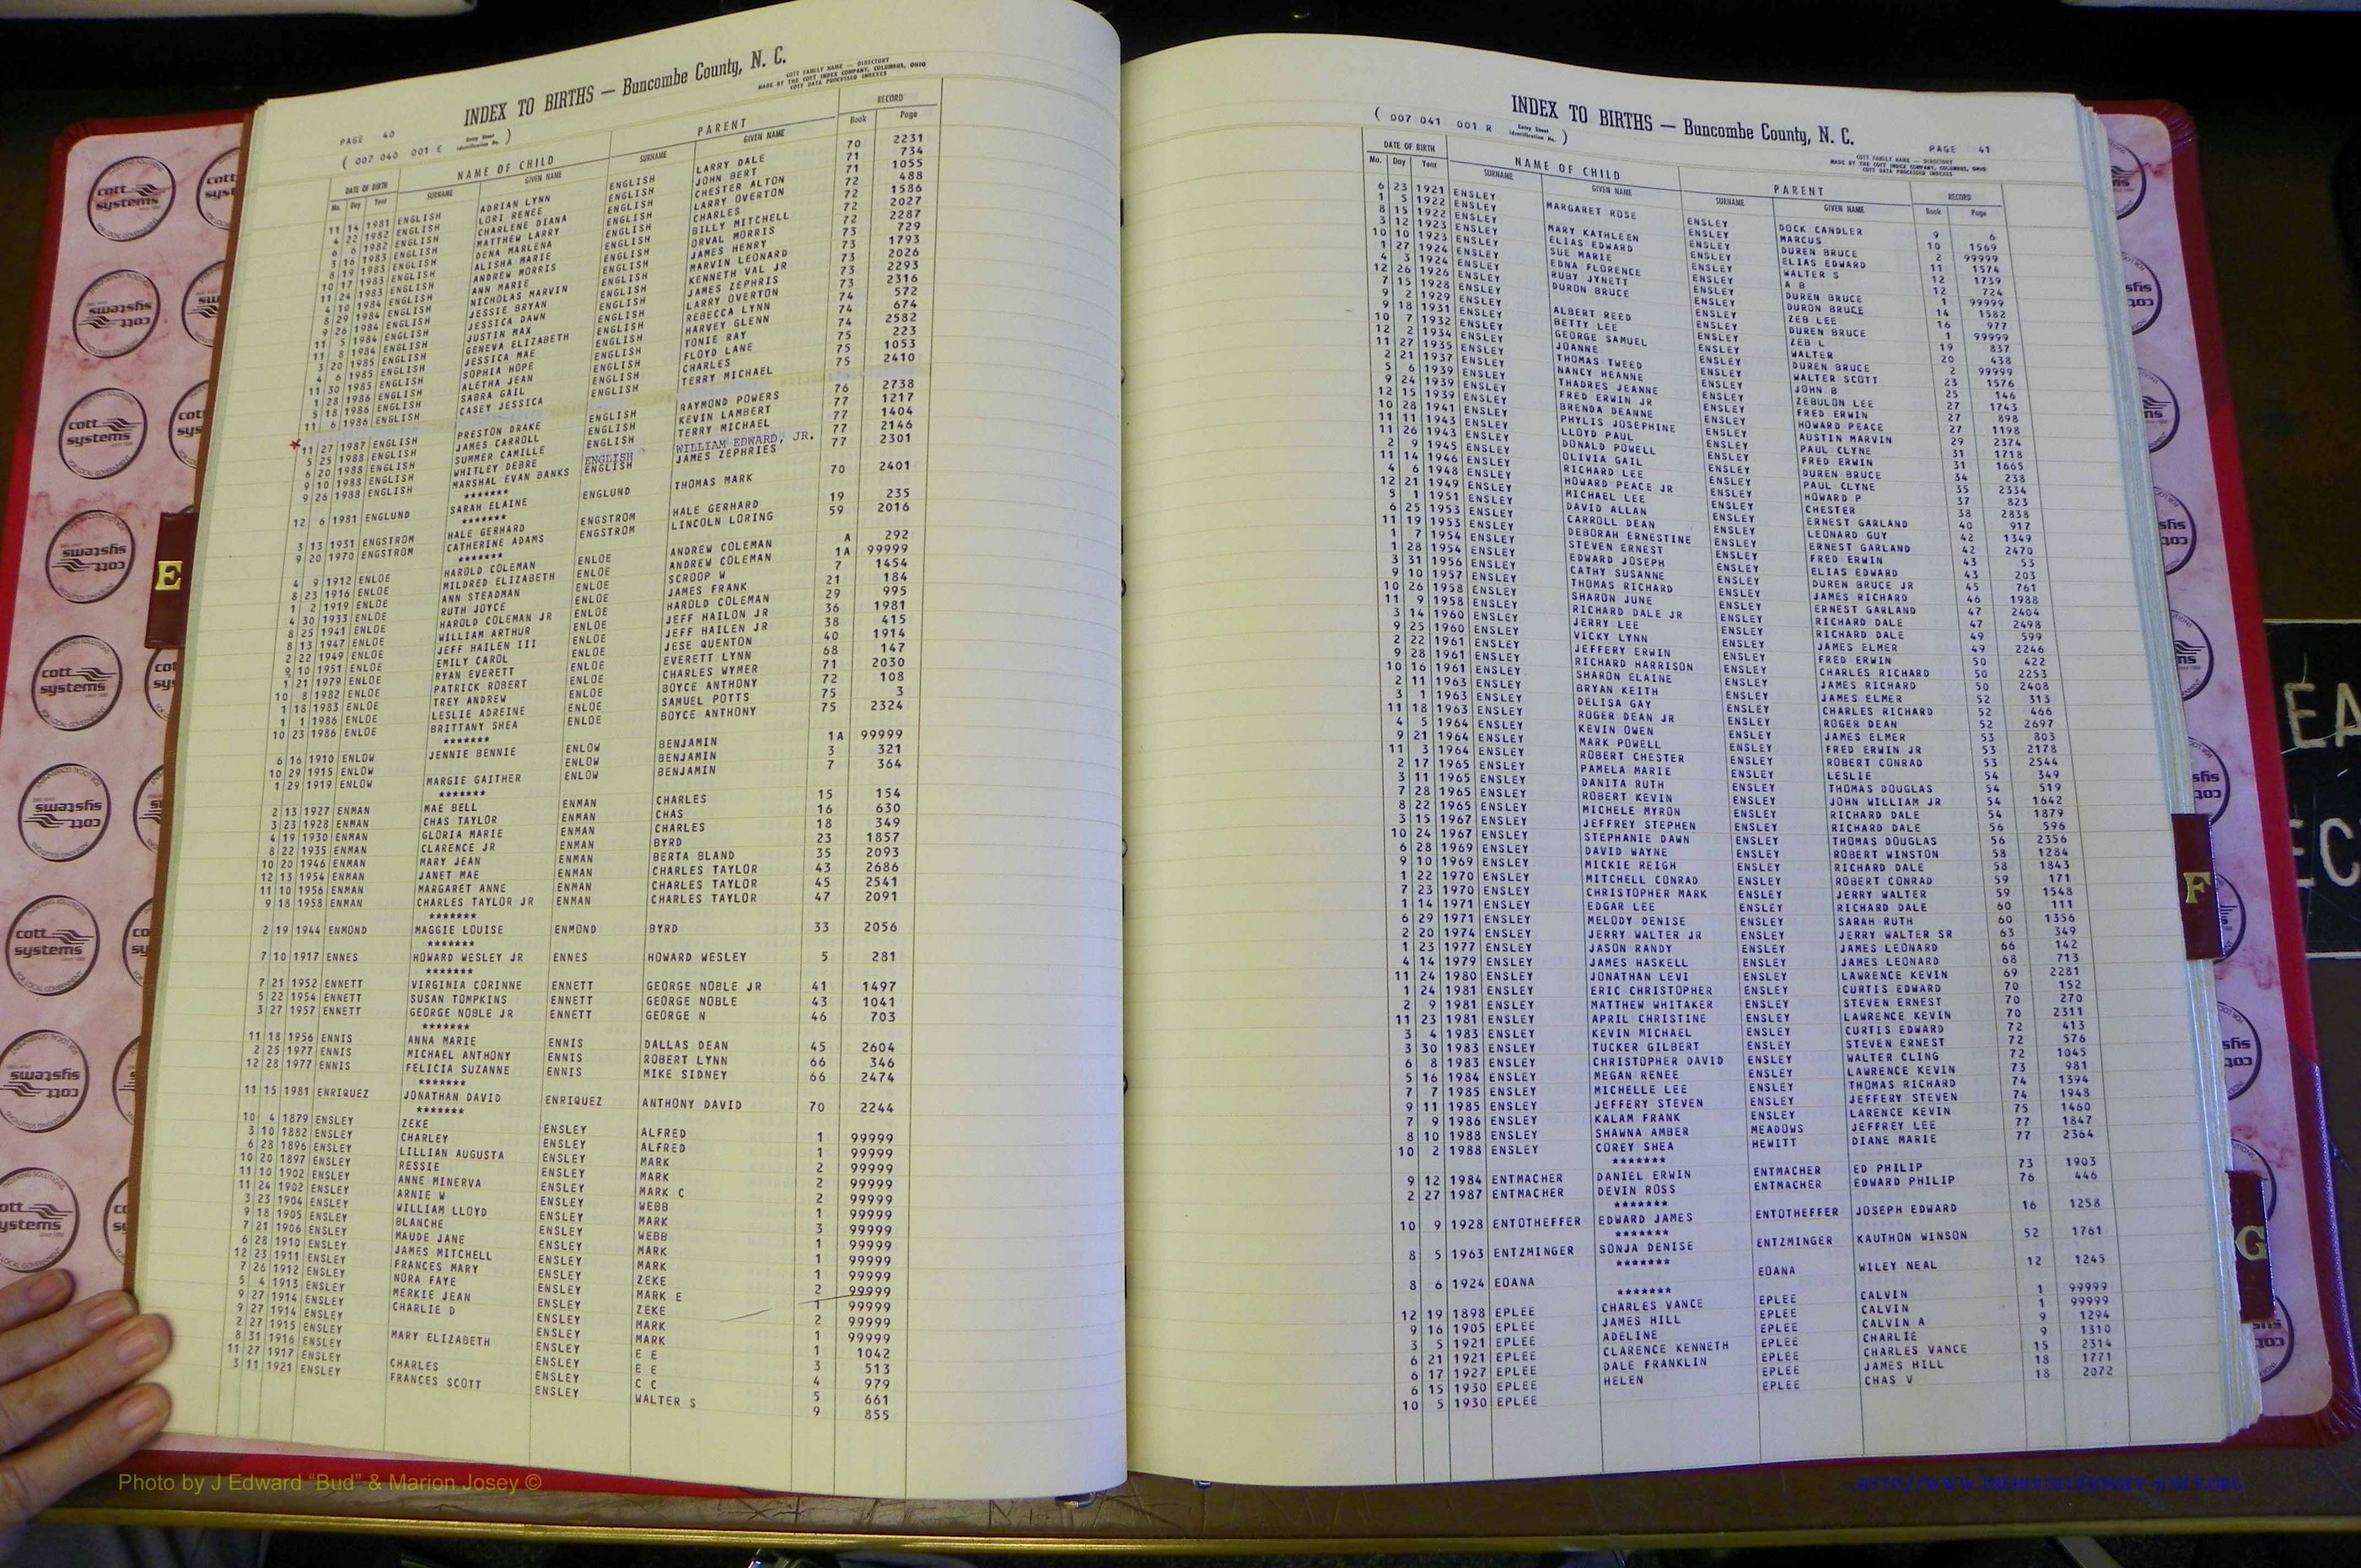 INDEX TO BIRTHS — Buncombe County, N. C.
COTT FAMILY NAME — DIRECTORY
MADE BY THE COTT INDEX COMPANY, COLUMBUS, OHIO
COTT DATA PROCESSED INDEXES
PAGE 40
( 007 040 001 E Entry Sheet Identification No. )
DATE OF BIRTH NAME OF CHILD PARENT RECORD
Mo. Day Year SURNAME GIVEN NAME SURNAME GIVEN NAME Book Page
11 14 1981 ENGLISH ADRIAN LYNN ENGLISH LARRY DALE 70 2231
4 22 1982 ENGLISH LORI RENEE ENGLISH JOHN BERT 71 734
6 6 1982 ENGLISH CHARLENE DIANA ENGLISH CHESTER ALTON 71 1055
3 16 1983 ENGLISH MATTHEW LARRY ENGLISH LARRY OVERTON 72 488
8 19 1983 ENGLISH DENA MARLENA ENGLISH CHARLES 72 1586
10 17 1983 ENGLISH ALISHA MARIE ENGLISH BILLY MITCHELL 72 2027
11 24 1983 ENGLISH ANDREW MORRIS ENGLISH ORVAL MORRIS 72 2287
4 10 1984 ENGLISH ANN MARIE ENGLISH JAMES HENRY 73 729
8 29 1984 ENGLISH NICHOLAS MARVIN ENGLISH MARVIN LEONARD 73 1793
9 26 1984 ENGLISH JESSIE BRYAN ENGLISH KENNETH VAL JR 73 2026
11 5 1984 ENGLISH JESSICA DAWN ENGLISH JAMES ZEPHRIS 73 2293
11 8 1984 ENGLISH JUSTIN MAX ENGLISH LARRY OVERTON 73 2316
3 20 1985 ENGLISH GENEVA ELIZABETH ENGLISH REBECCA LYNN 74 572
4 6 1985 ENGLISH JESSICA MAE ENGLISH HARVEY GLENN 74 674
11 30 1985 ENGLISH SOPHIA HOPE ENGLISH TONIE RAY 74 2582
1 28 1986 ENGLISH ALETHA JEAN ENGLISH FLOYD LANE 75 223
5 18 1986 ENGLISH SABRA GAIL ENGLISH CHARLES 75 1053
11 6 1986 ENGLISH CASEY JESSICA ENGLISH TERRY MICHAEL 75 2410
* 11 27 1987 ENGLISH PRESTON DRAKE ENGLISH RAYMOND POWERS 76 2738
5 25 1988 ENGLISH JAMES CARROLL ENGLISH KEVIN LAMBERT 77 1217
6 20 1988 ENGLISH SUMMER CAMILLE TERRY MICHAEL 77 1404
9 10 1988 ENGLISH WHITLEY DEBRE ENGLISH WILLIAM EDWARD, JR. 77 2146
9 26 1988 ENGLISH MARSHAL EVAN BANKS ENGLISH JAMES ZEPHRIES 77 2301
*******
12 6 1981 ENGLUND SARAH ELAINE ENGLUND THOMAS MARK 70 2401
*******
3 13 1931 ENGSTROM HALE GERHARD ENGSTROM HALE GERHARD 19 235
9 20 1970 ENGSTROM CATHERINE ADAMS ENGSTROM LINCOLN LORING 59 2016
*******
4 9 1912 ENLOE HAROLD COLEMAN ENLOE ANDREW COLEMAN A 292
8 23 1916 ENLOE MILDRED ELIZABETH ENLOE ANDREW COLEMAN 1A 99999
1 2 1919 ENLOE ANN STEADMAN ENLOE SCROOP W 7 1454
4 30 1933 ENLOE RUTH JOYCE ENLOE JAMES FRANK 21 184
8 25 1941 ENLOE HAROLD COLEMAN JR ENLOE HAROLD COLEMAN 29 995
8 13 1947 ENLOE WILLIAM ARTHUR ENLOE JEFF HAILON JR 36 1981
2 22 1949 ENLOE JEFF HAILEN III ENLOE JEFF HAILEN JR 38 415
9 10 1951 ENLOE EMILY CAROL ENLOE JESE QUENTON 40 1914
1 21 1979 ENLOE RYAN EVERETT ENLOE EVERETT LYNN 68 147
10 8 1982 ENLOE PATRICK ROBERT ENLOE CHARLES WYMER 71 2030
1 18 1983 ENLOE TREY ANDREW ENLOE BOYCE ANTHONY 72 108
1 1 1986 ENLOE LESLIE ADREINE ENLOE SAMUEL POTTS 75 3
10 23 1986 ENLOE BRITTANY SHEA ENLOE BOYCE ANTHONY 75 2324
*******
6 16 1910 ENLOW JENNIE BENNIE ENLOW BENJAMIN 1A 99999
10 29 1915 ENLOW ENLOW BENJAMIN 3 321
1 29 1919 ENLOW MARGIE GAITHER ENLOW BENJAMIN 7 364
*******
2 13 1927 ENMAN MAE BELL ENMAN CHARLES 15 154
3 23 1928 ENMAN CHAS TAYLOR ENMAN CHAS 16 630
4 19 1930 ENMAN GLORIA MARIE ENMAN CHARLES 18 349
8 22 1935 ENMAN CLARENCE JR ENMAN BYRD 23 1857
10 20 1946 ENMAN MARY JEAN ENMAN BERTA BLAND 35 2093
12 13 1954 ENMAN JANET MAE ENMAN CHARLES TAYLOR 43 2686
11 10 1956 ENMAN MARGARET ANNE ENMAN CHARLES TAYLOR 45 2541
9 18 1958 ENMAN CHARLES TAYLOR JR ENMAN CHARLES TAYLOR 47 2091
*******
2 19 1944 ENMOND MAGGIE LOUISE ENMOND BYRD 33 2056
*******
7 10 1917 ENNES HOWARD WESLEY JR ENNES HOWARD WESLEY 5 281
*******
7 21 1952 ENNETT VIRGINIA CORINNE ENNETT GEORGE NOBLE JR 41 1497
5 22 1954 ENNETT SUSAN TOMPKINS ENNETT GEORGE NOBLE 43 1041
3 27 1957 ENNETT GEORGE NOBLE JR ENNETT GEORGE N 46 703
*******
11 18 1956 ENNIS ANNA MARIE ENNIS DALLAS DEAN 45 2604
2 25 1977 ENNIS MICHAEL ANTHONY ENNIS ROBERT LYNN 66 346
12 28 1977 ENNIS FELICIA SUZANNE ENNIS MIKE SIDNEY 66 2474
*******
11 15 1981 ENRIQUEZ JONATHAN DAVID ENRIQUEZ ANTHONY DAVID 70 2244
*******
10 4 1879 ENSLEY ZEKE ENSLEY ALFRED 1 99999
3 10 1882 ENSLEY CHARLEY ENSLEY ALFRED 1 99999
6 28 1896 ENSLEY LILLIAN AUGUSTA ENSLEY MARK 2 99999
10 20 1897 ENSLEY RESSIE ENSLEY MARK 2 99999
11 10 1902 ENSLEY ANNE MINERVA ENSLEY MARK C 2 99999
11 24 1902 ENSLEY ARNIE W ENSLEY WEBB 1 99999
3 23 1904 ENSLEY WILLIAM LLOYD ENSLEY MARK 3 99999
9 18 1905 ENSLEY BLANCHE ENSLEY WEBB 1 99999
7 21 1906 ENSLEY MAUDE JANE ENSLEY MARK 1 99999
6 28 1910 ENSLEY JAMES MITCHELL ENSLEY MARK 1 99999
12 23 1911 ENSLEY FRANCES MARY ENSLEY ZEKE 2 99999
7 26 1912 ENSLEY NORA FAYE ENSLEY MARK E 1 99999
5 4 1913 ENSLEY MERKIE JEAN ENSLEY ZEKE 2 99999
9 27 1914 ENSLEY CHARLIE D ENSLEY MARK 1 99999
9 27 1914 ENSLEY ENSLEY MARK 1 1042
2 27 1915 ENSLEY MARY ELIZABETH ENSLEY E E 3 513
8 31 1916 ENSLEY ENSLEY E E 4 979
11 27 1917 ENSLEY CHARLES ENSLEY C C 5 661
3 11 1921 ENSLEY FRANCES SCOTT ENSLEY WALTER S 9 855
INDEX TO BIRTHS — Buncombe County, N. C.
( 007 041 001 R Entry Sheet Identification No. )
PAGE 41
COTT FAMILY NAME — DIRECTORY
MADE BY THE COTT INDEX COMPANY, COLUMBUS, OHIO
COTT DATA PROCESSED INDEXES
DATE OF BIRTH NAME OF CHILD PARENT RECORD
Mo. Day Year SURNAME GIVEN NAME SURNAME GIVEN NAME Book Page
6 23 1921 ENSLEY MARGARET ROSE ENSLEY DOCK CANDLER 9 6
1 5 1922 ENSLEY ENSLEY MARCUS 10 1569
8 15 1922 ENSLEY MARY KATHLEEN ENSLEY DUREN BRUCE 2 99999
3 12 1923 ENSLEY ELIAS EDWARD ENSLEY ELIAS EDWARD 11 1574
10 10 1923 ENSLEY SUE MARIE ENSLEY WALTER S 12 1739
1 27 1924 ENSLEY EDNA FLORENCE ENSLEY A B 12 724
4 3 1924 ENSLEY RUBY JYNETT ENSLEY DUREN BRUCE 1 99999
12 26 1926 ENSLEY DURON BRUCE ENSLEY DURON BRUCE 14 1582
7 15 1928 ENSLEY ENSLEY ZEB LEE 16 977
9 2 1929 ENSLEY ALBERT REED ENSLEY DUREN BRUCE 1 99999
9 18 1931 ENSLEY BETTY LEE ENSLEY ZEB L 19 837
10 7 1932 ENSLEY GEORGE SAMUEL ENSLEY WALTER 20 438
12 2 1934 ENSLEY JOANNE ENSLEY DUREN BRUCE 2 99999
11 27 1935 ENSLEY THOMAS TWEED ENSLEY WALTER SCOTT 23 1576
2 21 1937 ENSLEY NANCY HEANNE ENSLEY JOHN B 25 146
5 6 1939 ENSLEY THADRES JEANNE ENSLEY ZEBULON LEE 27 1743
9 24 1939 ENSLEY FRED ERWIN JR ENSLEY FRED ERWIN 27 898
12 15 1939 ENSLEY BRENDA DEANNE ENSLEY HOWARD PEACE 27 1198
10 28 1941 ENSLEY PHYLIS JOSEPHINE ENSLEY AUSTIN MARVIN 29 2374
11 11 1943 ENSLEY LLOYD PAUL ENSLEY PAUL CLYNE 31 1718
11 26 1943 ENSLEY DONALD POWELL ENSLEY FRED ERWIN 31 1665
2 9 1945 ENSLEY OLIVIA GAIL ENSLEY DUREN BRUCE 34 238
11 14 1946 ENSLEY RICHARD LEE ENSLEY PAUL CLYNE 35 2334
4 6 1948 ENSLEY HOWARD PEACE JR ENSLEY HOWARD P 37 823
12 21 1949 ENSLEY MICHAEL LEE ENSLEY CHESTER 38 2838
5 1 1951 ENSLEY DAVID ALLAN ENSLEY ERNEST GARLAND 40 917
6 25 1953 ENSLEY CARROLL DEAN ENSLEY LEONARD GUY 42 1349
11 19 1953 ENSLEY DEBORAH ERNESTINE ENSLEY ERNEST GARLAND 42 2470
1 7 1954 ENSLEY STEVEN ERNEST ENSLEY FRED ERWIN 43 53
1 28 1954 ENSLEY EDWARD JOSEPH ENSLEY ELIAS EDWARD 43 203
3 31 1956 ENSLEY CATHY SUSANNE ENSLEY DUREN BRUCE JR 45 761
9 10 1957 ENSLEY THOMAS RICHARD ENSLEY JAMES RICHARD 46 1988
10 26 1958 ENSLEY SHARON JUNE ENSLEY ERNEST GARLAND 47 2404
11 9 1958 ENSLEY RICHARD DALE JR ENSLEY RICHARD DALE 47 2498
3 14 1960 ENSLEY JERRY LEE ENSLEY RICHARD DALE 49 599
9 25 1960 ENSLEY VICKY LYNN ENSLEY JAMES ELMER 49 2246
2 22 1961 ENSLEY JEFFERY ERWIN ENSLEY FRED ERWIN 50 422
9 28 1961 ENSLEY RICHARD HARRISON ENSLEY CHARLES RICHARD 50 2253
10 16 1961 ENSLEY SHARON ELAINE ENSLEY JAMES RICHARD 50 2408
2 11 1963 ENSLEY BRYAN KEITH ENSLEY JAMES ELMER 52 313
3 1 1963 ENSLEY DELISA GAY ENSLEY CHARLES RICHARD 52 466
11 18 1963 ENSLEY ROGER DEAN JR ENSLEY ROGER DEAN 52 2697
4 5 1964 ENSLEY KEVIN OWEN ENSLEY JAMES ELMER 53 803
9 21 1964 ENSLEY MARK POWELL ENSLEY FRED ERWIN JR 53 2178
11 3 1964 ENSLEY ROBERT CHESTER ENSLEY ROBERT CONRAD 53 2544
2 17 1965 ENSLEY PAMELA MARIE ENSLEY LESLIE 54 349
3 11 1965 ENSLEY DANITA RUTH ENSLEY THOMAS DOUGLAS 54 519
7 28 1965 ENSLEY ROBERT KEVIN ENSLEY JOHN WILLIAM JR 54 1642
8 22 1965 ENSLEY MICHELE MYRON ENSLEY RICHARD DALE 54 1879
3 15 1967 ENSLEY JEFFREY STEPHEN ENSLEY RICHARD DALE 56 596
10 24 1967 ENSLEY STEPHANIE DAWN ENSLEY THOMAS DOUGLAS 56 2356
6 28 1969 ENSLEY DAVID WAYNE ENSLEY ROBERT WINSTON 58 1284
9 10 1969 ENSLEY MICKIE REIGH ENSLEY RICHARD DALE 58 1843
1 22 1970 ENSLEY MITCHELL CONRAD ENSLEY ROBERT CONRAD 59 171
7 23 1970 ENSLEY CHRISTOPHER MARK ENSLEY JERRY WALTER 59 1548
1 14 1971 ENSLEY EDGAR LEE ENSLEY RICHARD DALE 60 111
6 29 1971 ENSLEY MELODY DENISE ENSLEY SARAH RUTH 60 1356
2 20 1974 ENSLEY JERRY WALTER JR ENSLEY JERRY WALTER SR 63 349
1 23 1977 ENSLEY JASON RANDY ENSLEY JAMES LEONARD 66 142
4 14 1979 ENSLEY JAMES HASKELL ENSLEY JAMES LEONARD 68 713
11 24 1980 ENSLEY JONATHAN LEVI ENSLEY LAWRENCE KEVIN 69 2281
1 24 1981 ENSLEY ERIC CHRISTOPHER ENSLEY CURTIS EDWARD 70 152
2 9 1981 ENSLEY MATTHEW WHITAKER ENSLEY STEVEN ERNEST 70 270
11 23 1981 ENSLEY APRIL CHRISTINE ENSLEY LAWRENCE KEVIN 70 2311
3 4 1983 ENSLEY KEVIN MICHAEL ENSLEY CURTIS EDWARD 72 413
3 30 1983 ENSLEY TUCKER GILBERT ENSLEY STEVEN ERNEST 72 576
6 8 1983 ENSLEY CHRISTOPHER DAVID ENSLEY WALTER CLING 72 1045
5 16 1984 ENSLEY MEGAN RENEE ENSLEY LAWRENCE KEVIN 73 981
7 7 1985 ENSLEY MICHELLE LEE ENSLEY THOMAS RICHARD 74 1394
9 11 1985 ENSLEY JEFFERY STEVEN ENSLEY JEFFERY STEVEN 74 1948
7 9 1986 ENSLEY KALAM FRANK ENSLEY LARENCE KEVIN 75 1460
8 10 1988 ENSLEY SHAWNA AMBER MEADOWS JEFFREY LEE 77 1847
10 2 1988 ENSLEY COREY SHEA HEWITT DIANE MARIE 77 2364
*******
9 12 1984 ENTMACHER DANIEL ERWIN ENTMACHER ED PHILIP 73 1903
2 27 1987 ENTMACHER DEVIN ROSS ENTMACHER EDWARD PHILIP 76 446
*******
10 9 1928 ENTOTHEFFER EDWARD JAMES ENTOTHEFFER JOSEPH EDWARD 16 1258
*******
8 5 1963 ENTZMINGER SONJA DENISE ENTZMINGER KAUTHON WINSON 52 1761
*******
8 6 1924 EOANA EOANA WILEY NEAL 12 1245
*******
12 19 1898 EPLEE CHARLES VANCE EPLEE CALVIN 1 99999
9 16 1905 EPLEE JAMES HILL EPLEE CALVIN 1 99999
3 5 1921 EPLEE ADELINE EPLEE CALVIN A 9 1294
6 21 1921 EPLEE CLARENCE KENNETH EPLEE CHARLIE 9 1310
6 17 1927 EPLEE DALE FRANKLIN EPLEE CHARLES VANCE 15 2314
6 15 1930 EPLEE HELEN EPLEE JAMES HILL 18 1771
10 5 1930 EPLEE EPLEE CHAS V 18 2072
E
F
G
cott systems
Photo by J Edward “Bud” & Marion Josey ©
HTTP://WWW.THEHOUSEOFJOSSEY-JOSEY.ORG